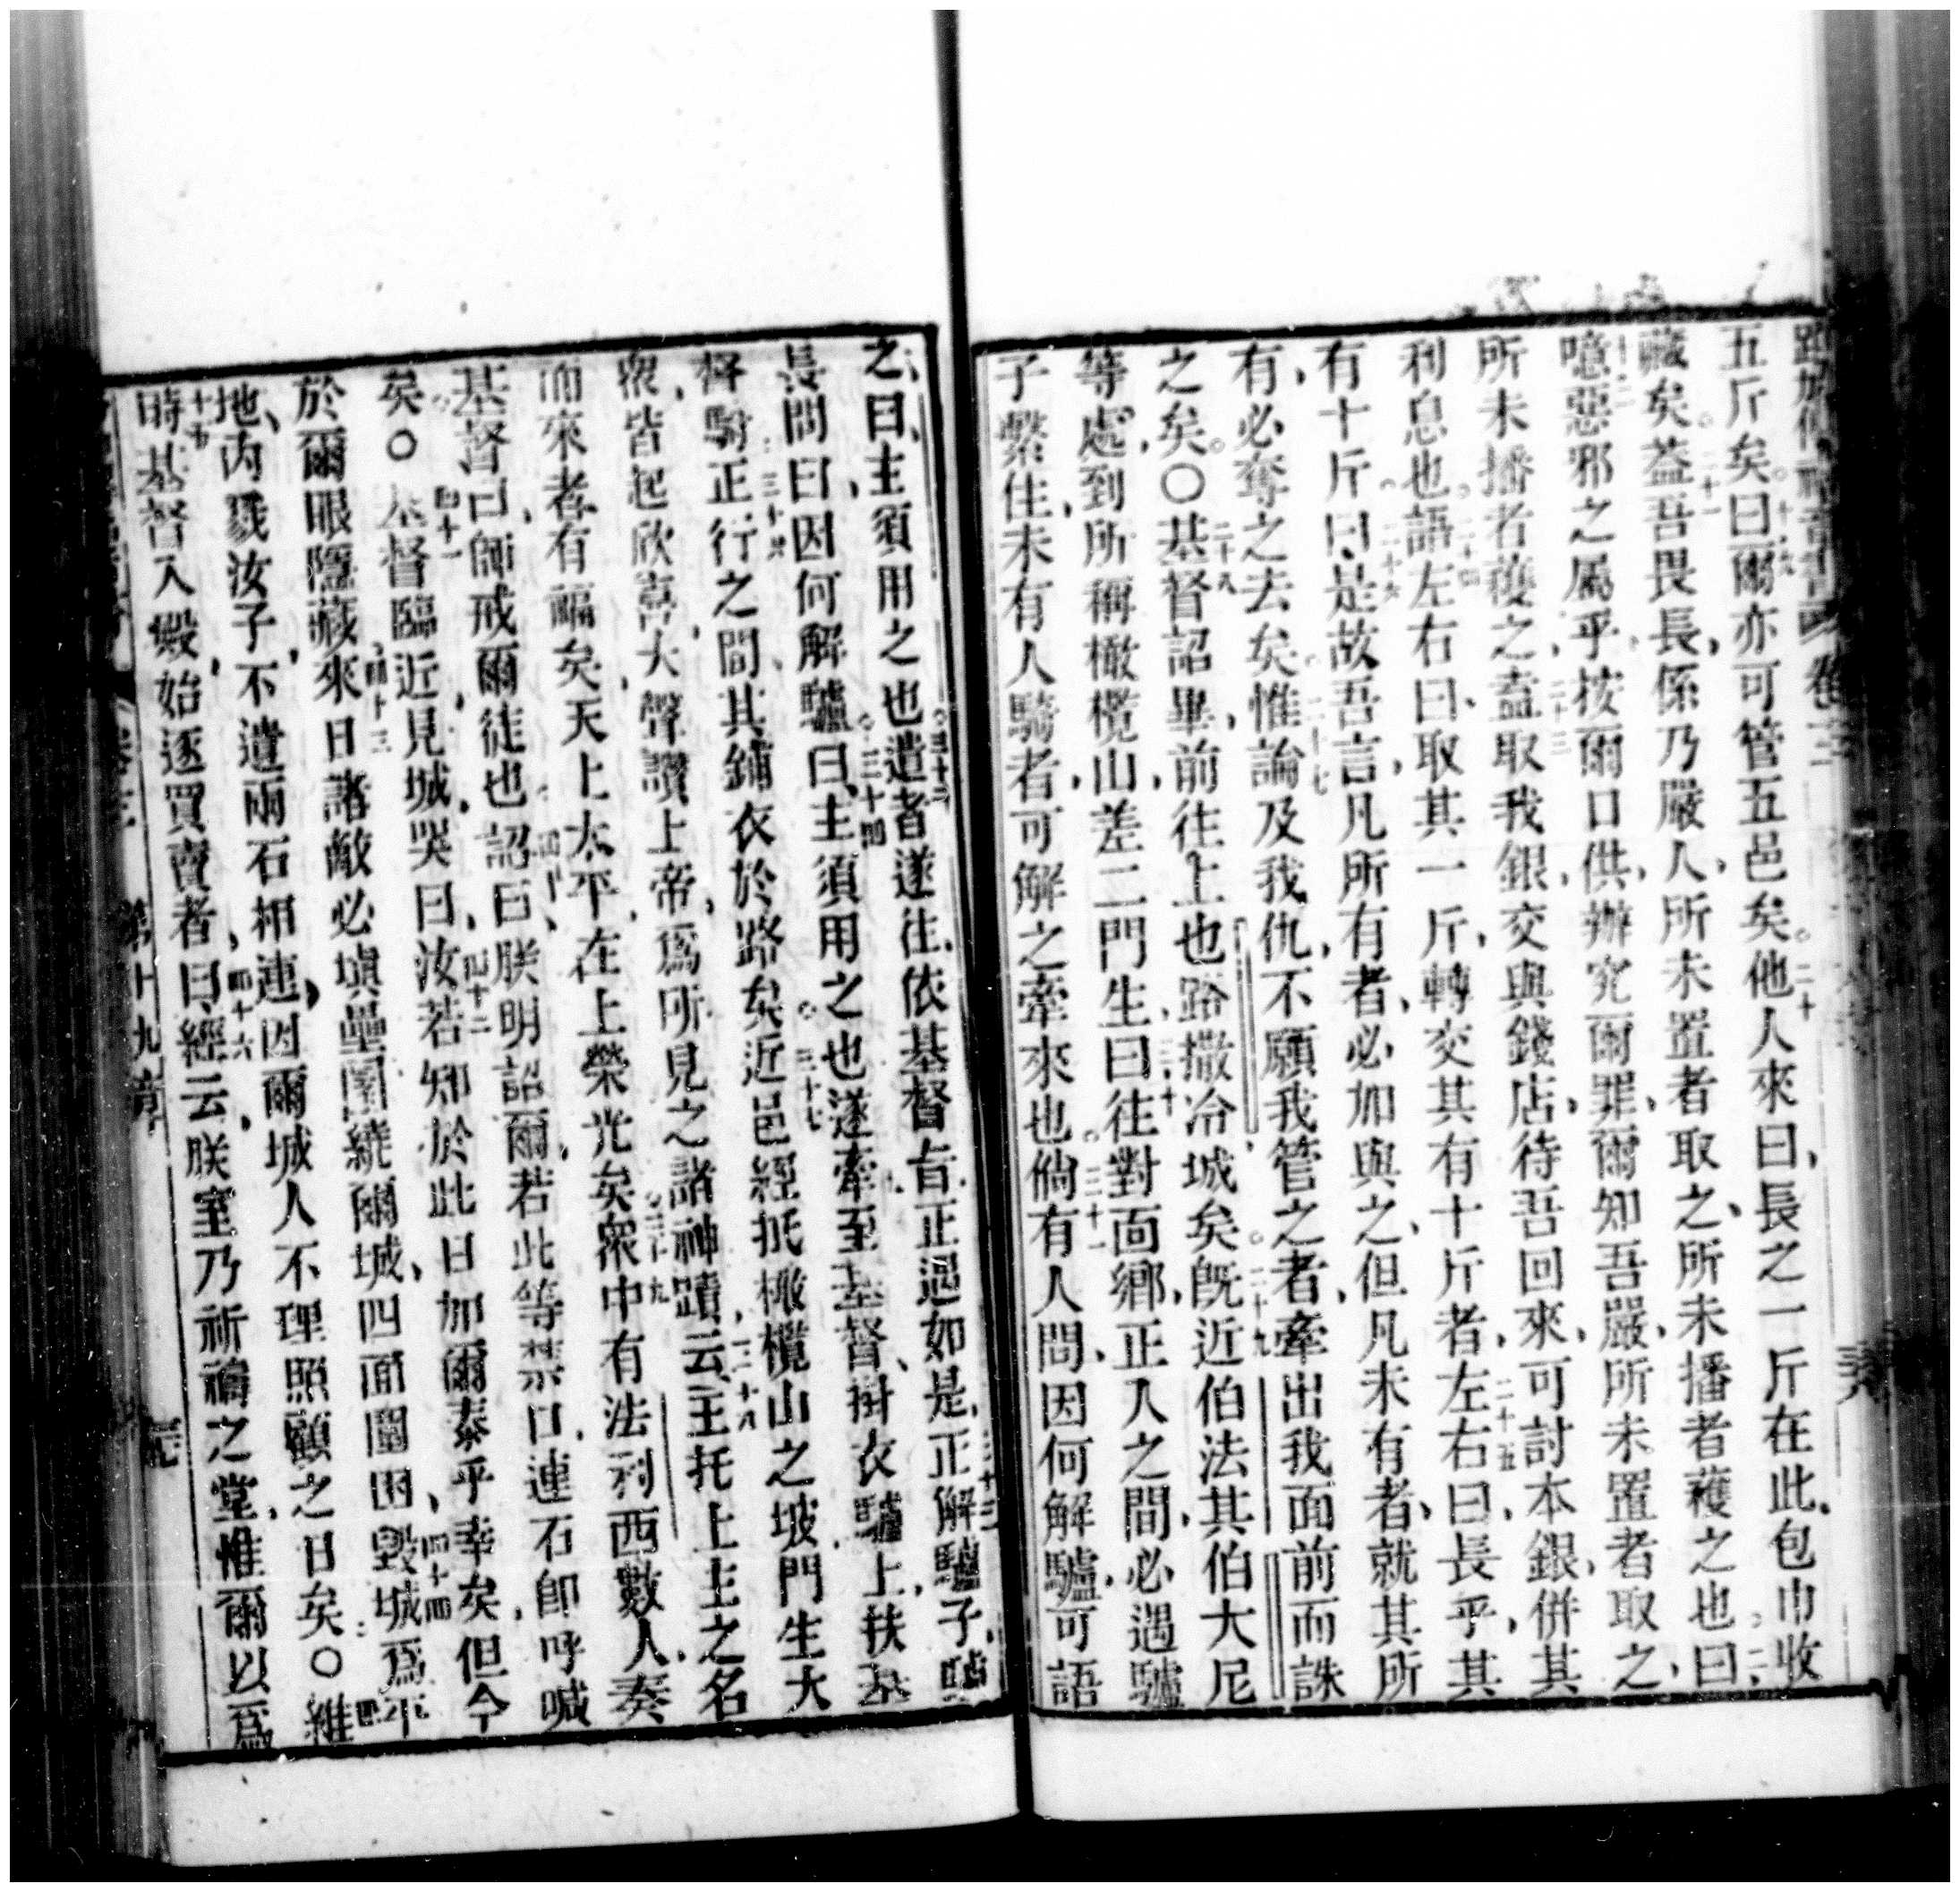 路加傳福音書 卷三
五斤矣十九曰爾亦可管五邑矣二十他人來曰長之一斤在此包巾收
藏矣二十一蓋吾畏長係乃嚴人所未置者取之所未播者穫之也曰
二十二噫惡邪之屬乎按爾口供辦究爾罪爾知吾嚴所未置者取之
所未播者穫之二十三盍取我銀交與錢店待吾回來可討本銀併其
利息也二十四語左右曰取其一斤轉交其有十斤者二十五左右曰長乎其
有十斤曰二十六是故吾言凡所有者必加與之但凡未有者就其所
有必奪之去矣二十七惟論及我仇不願我管之者牽出我面前而誅
之矣〇二十八基督詔畢前往上也路撒冷城矣二十九既近伯法其伯大尼
等處到所稱橄欖山差二門生三十曰往對面鄉正入之間必遇驢
子繫住未有人騎者可解之牽來也三十一倘有人問因何解驢可語
之曰主須用之也三十二遣者遂往依基督旨正遇如是三十三正解驢子驢
長問曰因何解驢三十四曰主須用之也遂牽至基督掛衣驢上扶基
督騎正三十六行之間其鋪衣於路矣三十七近邑經抵橄欖山之坡門生大
眾皆起欣喜大聲讚上帝爲所見之諸神蹟三十八云主托上主之名
而來者有福矣天上太平在上榮光矣三十九眾中有法利西數人奏
基督曰師戒爾徒也四十詔曰朕明詔爾若此等禁口連石即呼喊
矣〇四十一基督臨近見城哭曰四十二汝若知於此日加爾泰乎幸矣但今
於爾眼隱藏四十三來日諸敵必塡壘圍繞爾城四面圍困四十四毀城爲平
地內戮汝子不遺兩石相連因爾城人不理照顧之日矣〇維
時四十五基督入殿始逐買賣者曰四十六經云朕室乃祈禱之堂惟爾以爲
卷三 第十九章